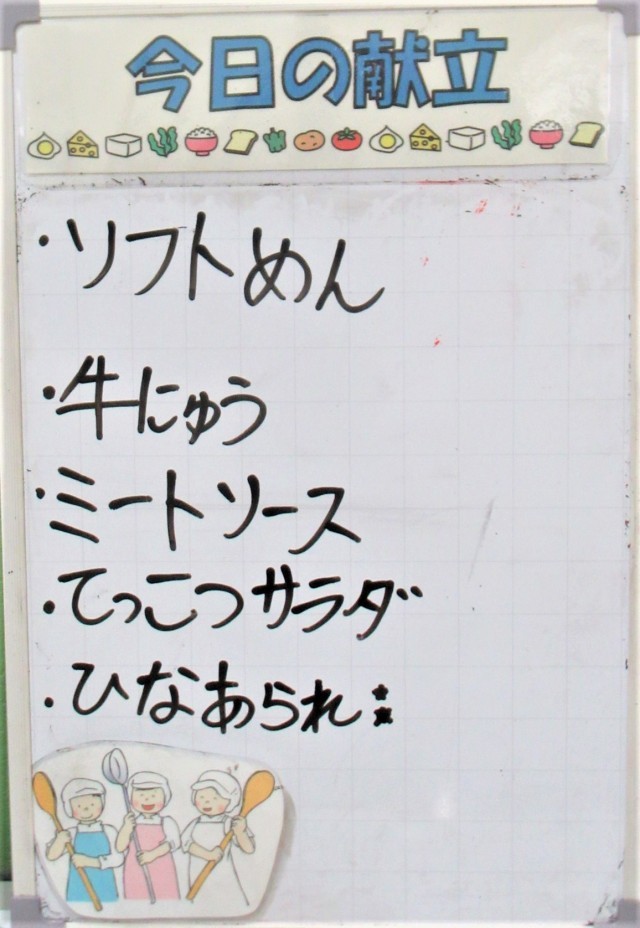 今日の献立
・ソフトめん
・牛にゅう
・ミートソース
・てっこつサラダ
・ひなあられ